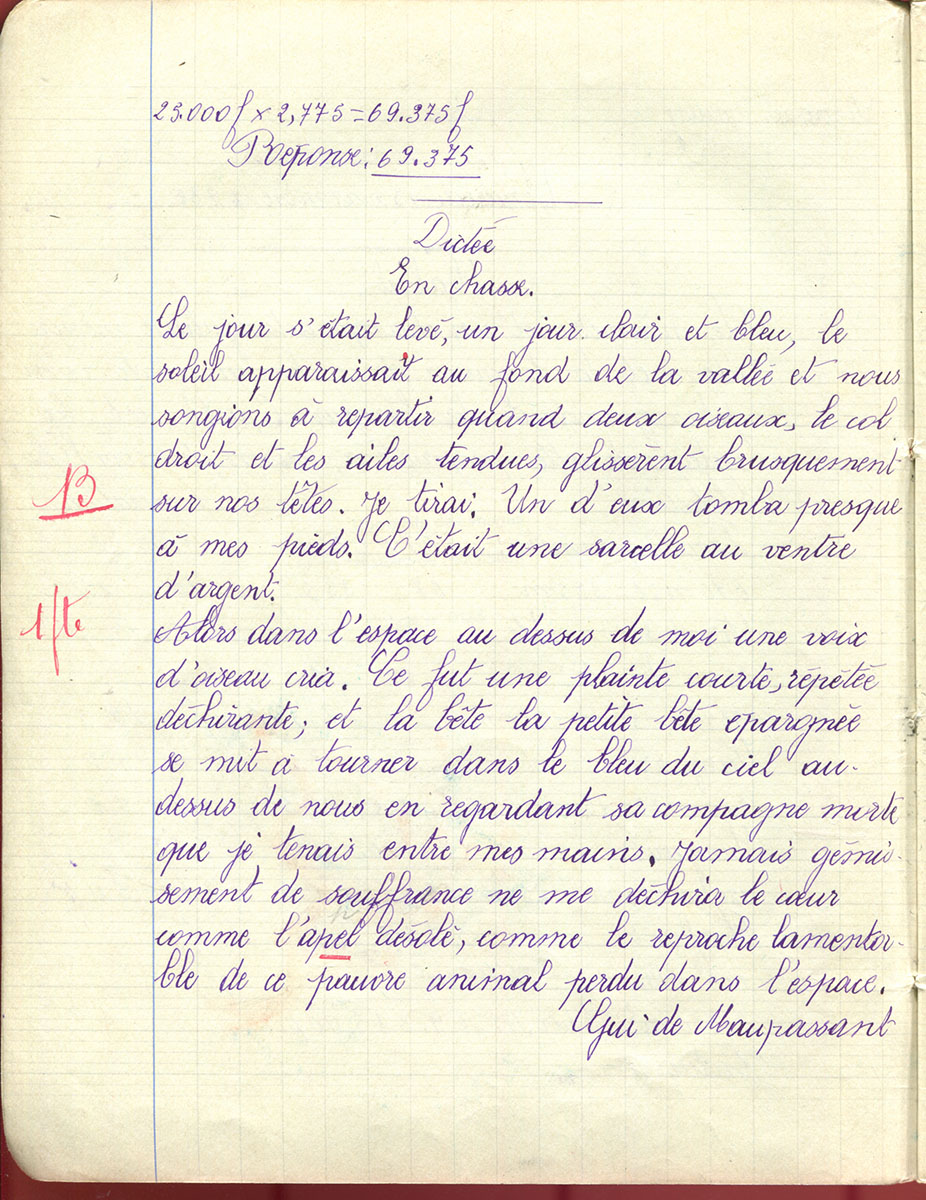 25.000f × 2,775 = 69.375f
Réponse: 69.375
Dictée
En chasse.
Le jour s'était levé, un jour clair et bleu, le
soleil apparaissait au fond de la vallée et nous
songions à repartir quand deux oiseaux, le col
droit et les ailes tendues, glissèrent brusquement
B
sur nos têtes. Je tirai. Un d'eux tomba presque
à mes pieds. C'était une sarcelle au ventre
d'argent.
1fte
Alors dans l'espace au dessus de moi une voix
d'oiseau cria. Ce fut une plainte courte, répétée
déchirante; et la bête la petite bête épargnée
se mit à tourner dans le bleu du ciel au-
dessus de nous en regardant sa compagne morte
que je tenais entre mes mains. Jamais gémis-
sement de souffrance ne me déchira le cœur
comme l'apel désolé, comme le reproche lamenta-
ble de ce pauvre animal perdu dans l'espace.
Gui de Maupassant